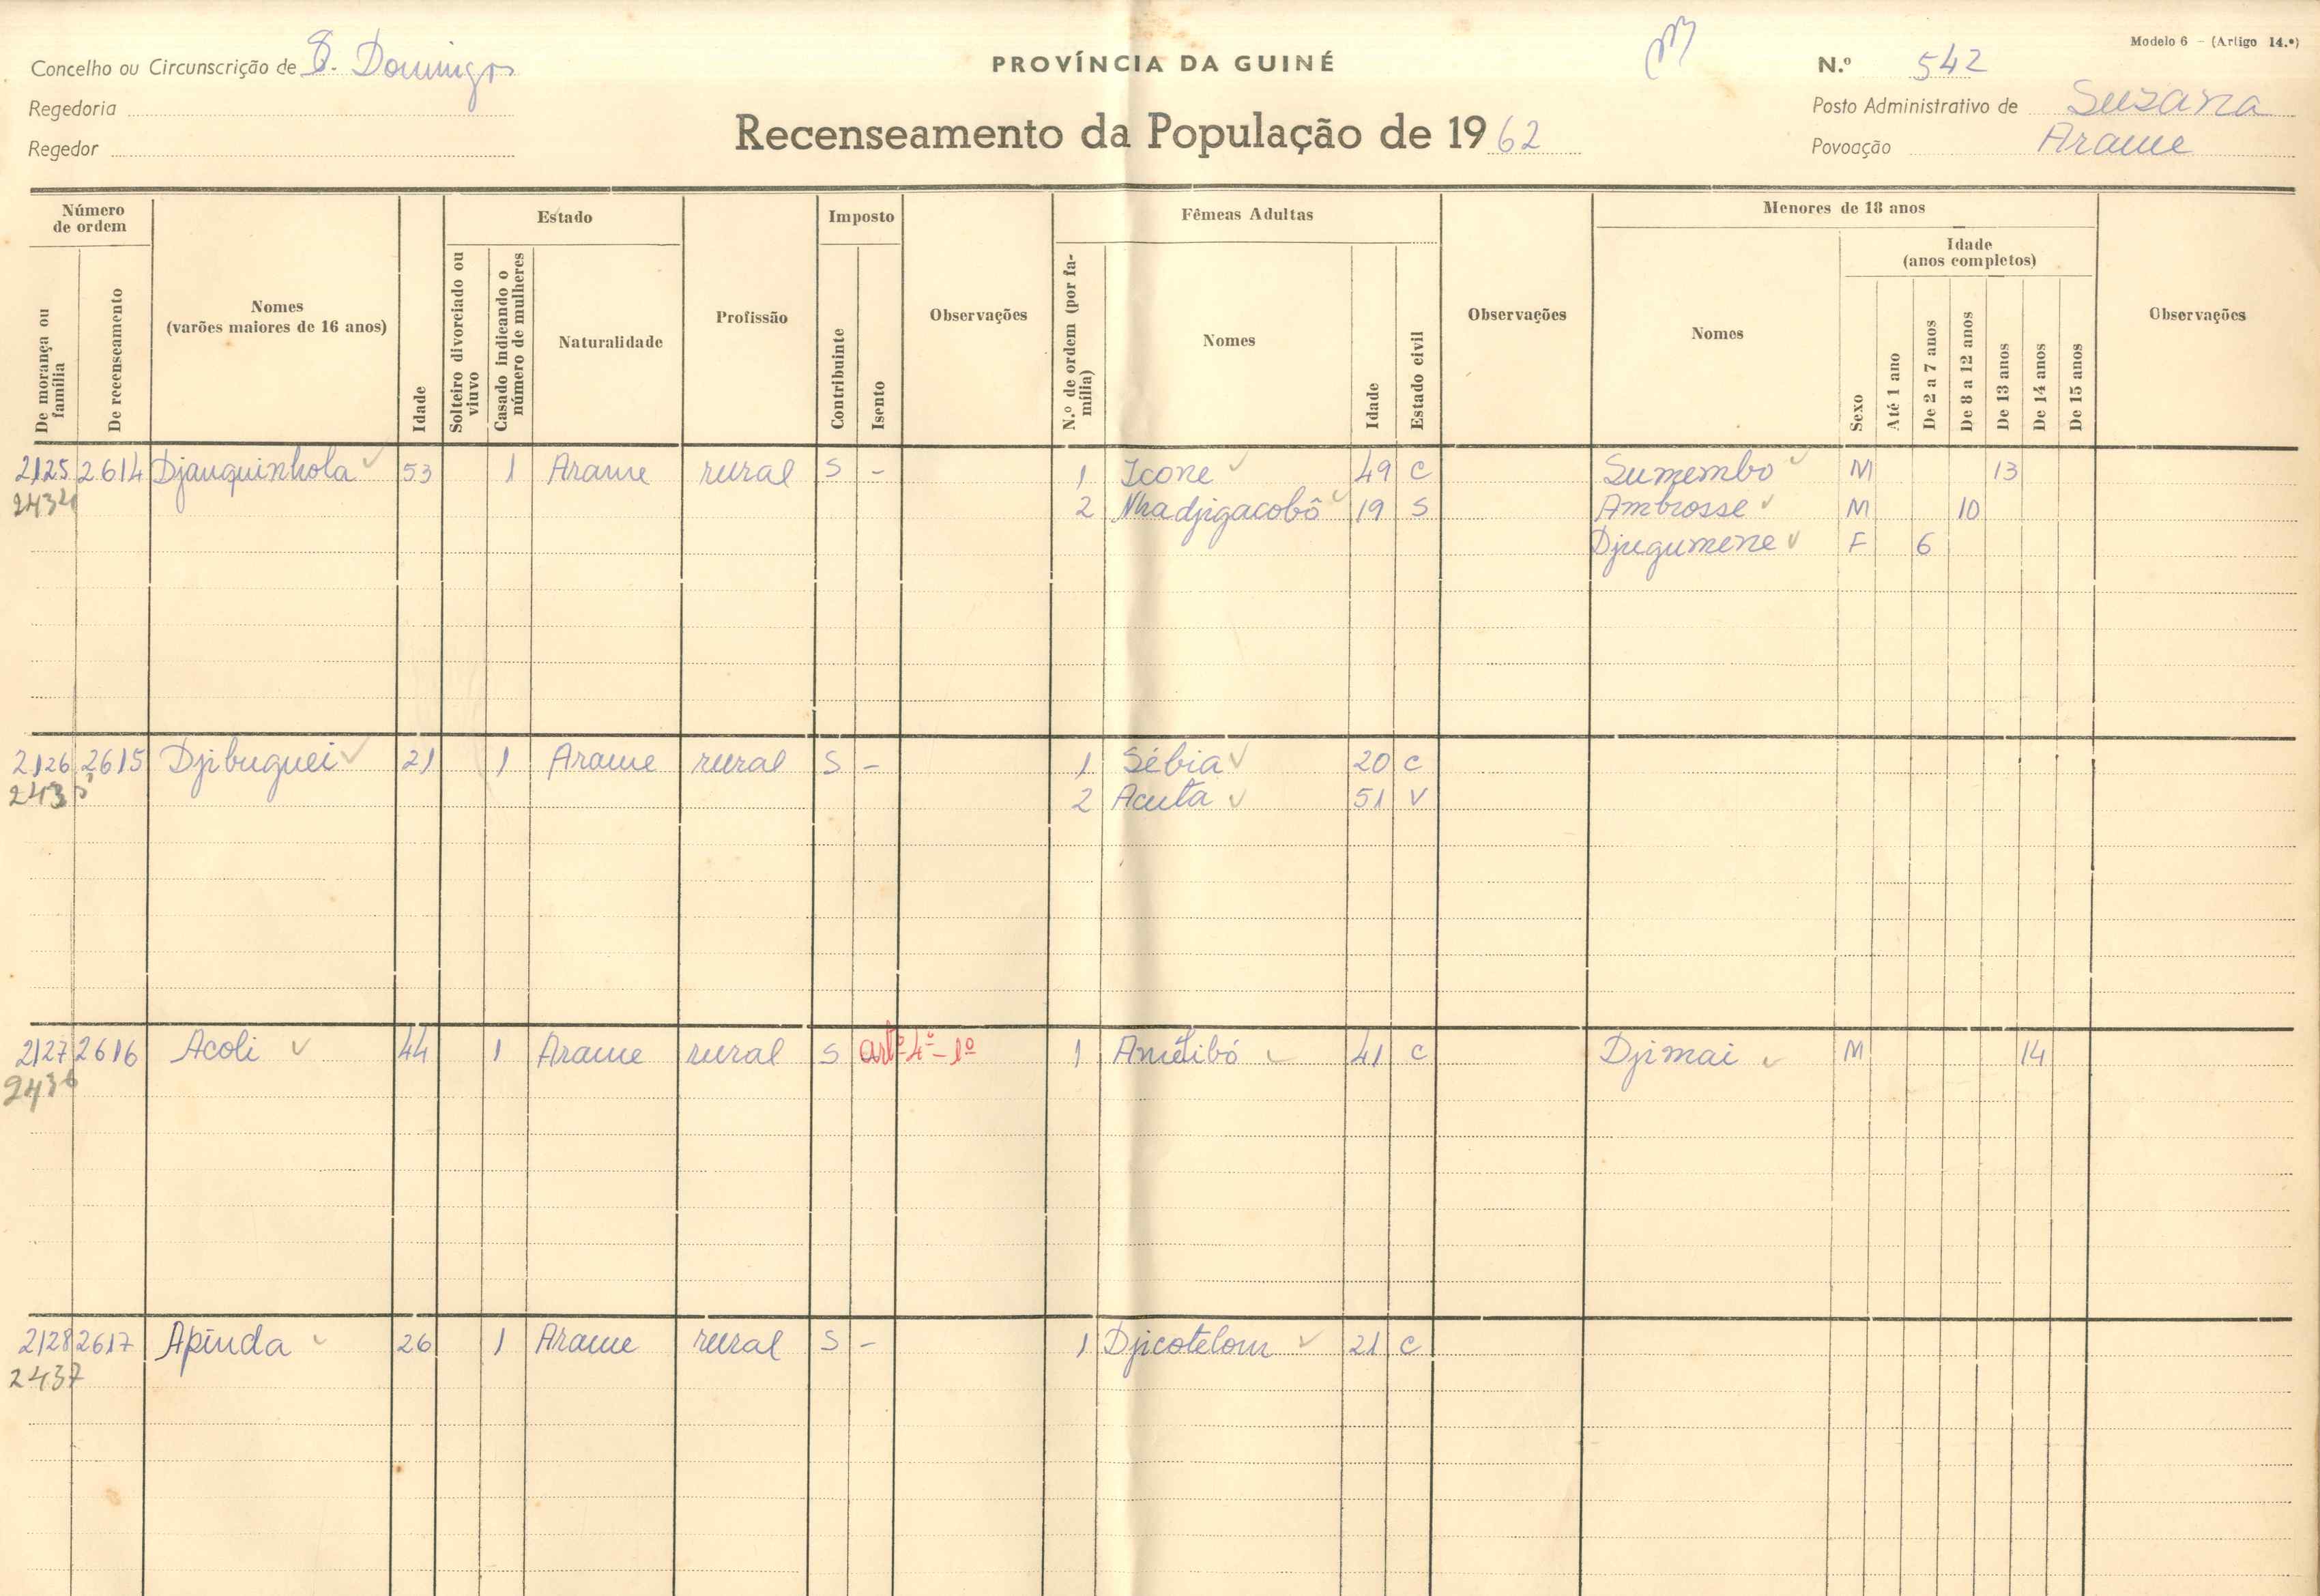 Modelo 6 - (Artigo 14.º)
Concelho ou Circunscrição de S. Domingos
PROVÍNCIA DA GUINÉ
N.º 542
Regedoria
Posto Administrativo de Suzana
Recenseamento da População de 1962
Regedor
Povoação Arame
Número de ordem
De morança ou família
De recenseamento
Nomes
(varões maiores de 16 anos)
Idade
Estado
Solteiro divorciado ou viuvo
Casado indicando o número de mulheres
Naturalidade
Profissão
Imposto
Contribuinte
Isento
Observações
Fêmeas Adultas
N.º de ordem (por família)
Nomes
Idade
Estado civil
Observações
Menores de 18 anos
Nomes
Sexo
Idade
(anos completos)
Até 1 ano
De 2 a 7 anos
De 8 a 12 anos
De 13 anos
De 14 anos
De 15 anos
Observações
2125 2614 Djauquinhola 53 1 Arame rural S - 1 Icone 49 C Sumembo M 13
2434 2 Nhadjigacobô 19 S Ambrosse M 10
Djugumene F 6
2126 2615 Djibuguei 21 1 Arame rural S - 1 Sébia 20 C
2435 2 Acuta 51 V
2127 2616 Acoli 44 1 Arame rural S artº 4º - 1º 1 Amélibó 41 C Djimai M 14
2436
2128 2617 Apinda 26 1 Arame rural S - 1 Djicotelom 21 C
2437